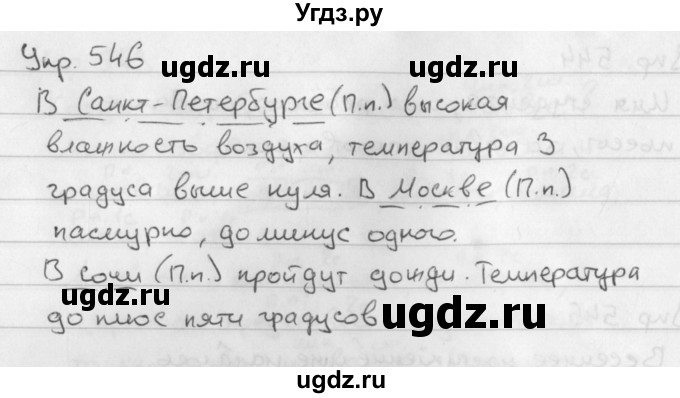 Угдз.ру
Упр. 546
ugdz.ru ugdz.ru
В Санкт-Петербурге (П.п.) высокая
влажность воздуха, температура 3
градуса выше нуля. В Москве (П.п.)
пасмурно, до минус одного.
В сочи (П.п.) пройдут дожди. Температура
ugdz.ru
до плюс пяти градусов
ugdz.ru
ugdz.ru